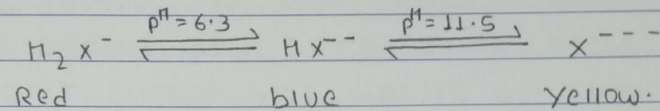 H₂x⁻ ⇌ (pᴴ = 6.3) Hx⁻⁻ ⇌ (pᴴ = 11.5) x⁻⁻⁻
Red blue yellow.